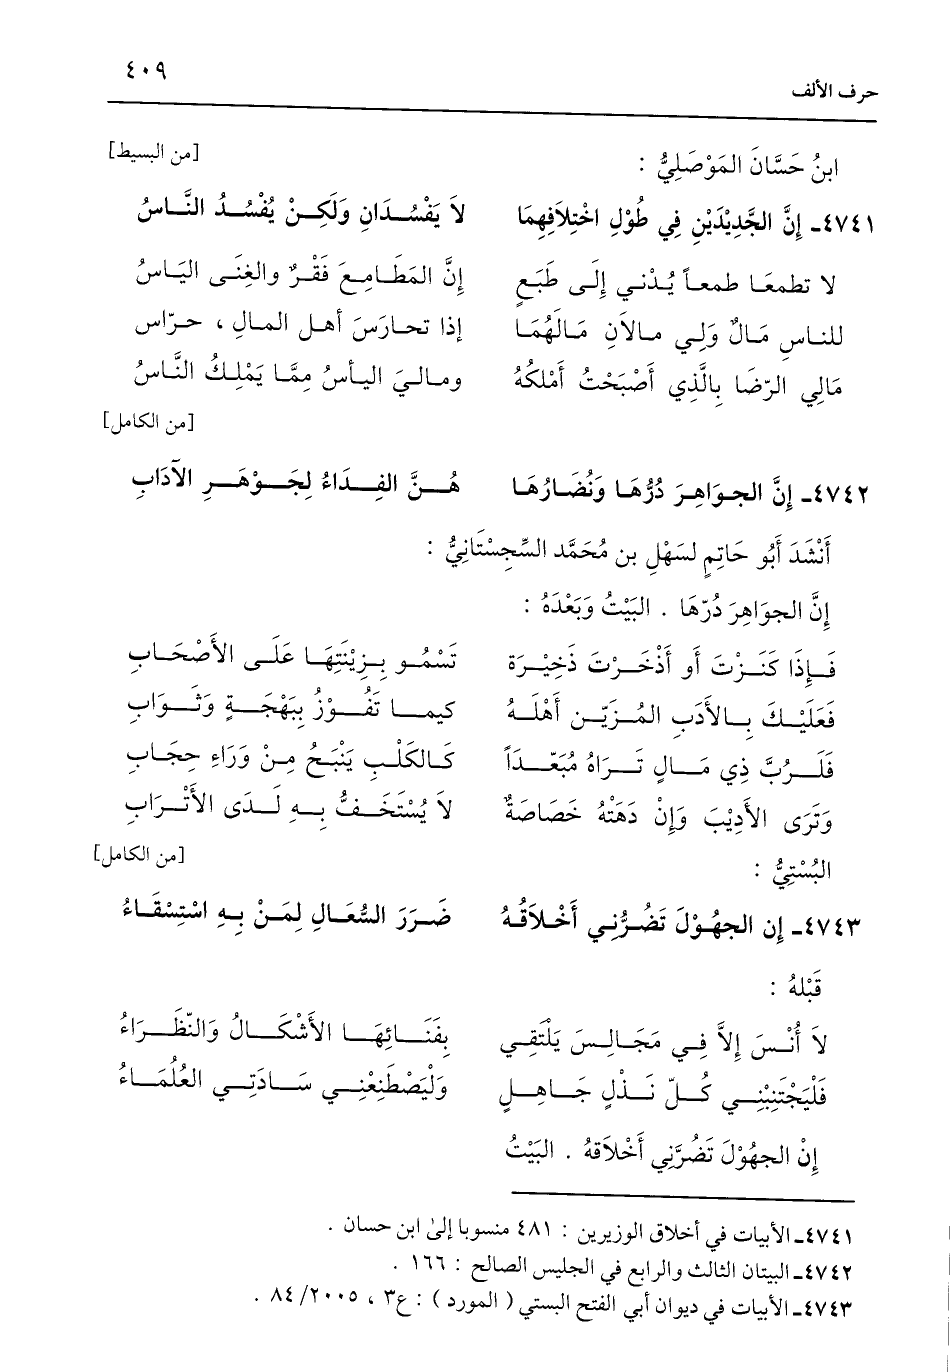 حرف الألف ٤٠٩
ابنُ حَسَّانَ المَوْصَلِيُّ : [من البسيط]
٤٧٤١ـ إِنَّ الجَّدِيْدَيْنِ فِي طُوْلِ اخْتِلَافِهِمَا لاَ يَفْسُدَانِ وَلَكِنْ يُفْسُدُ النَّاسُ
لا تطمعَا طمعاً يُدْني إِلَى طَبَعٍ إِنَّ المَطَامِعَ فَقْرٌ والغِنَى اليَاسُ
للناسِ مَالٌ وَلِي مالاَنِ مَالَهُمَا إذا تحارَسَ أهل المالِ ، حرّاس
مَالِي الرّضَا بِالَّذِي أَصْبَحْتُ أَمْلكهُ وماليَ اليأسُ مِمَّا يَمْلِكُ النَّاسُ
[من الكامل]
٤٧٤٢ـ إِنَّ الجوَاهِرَ دُرُّهَا وَنُضَارُهَا هُنَّ الفِدَاءُ لِجَوْهَرِ الآدَابِ
أَنْشَدَ أَبُو حَاتِمٍ لسَهْلِ بن مُحَمَّد السِّجِسْتَانِيُّ :
إِنَّ الجوَاهِرَ دُرّهَا . البَيْتُ وَبَعْدَهُ :
فَإِذَا كَنَزْتَ أو أَذْخَرْتَ ذَخِيْرَة تَسْمُو بِزِيْنَتِهَا عَلَى الأَصْحَابِ
فَعَلَيْكَ بِالأَدَبِ المُزَيّنِ أَهْلَهُ كيما تَفُوْزُ بِبَهْجَةٍ وَثَوَابِ
فَلَرُبَّ ذِي مَالٍ تَرَاهُ مُبَعَّدَاً كَالكَلْبِ يَنْبَحُ مِنْ وَرَاءِ حِجَابِ
وَتَرَى الأَدِيْبَ وَإِنْ دَهَتْهُ خَصَاصَةٌ لاَ يُسْتَخَفُّ بِهِ لَدَى الأَتْرَابِ
البُسْتِيُّ : [من الكامل]
٤٧٤٣ـ إن الجهُوْلَ تَضُرُّني أَخْلاَقُهُ ضَرَرَ السُّعَالِ لِمَنْ بِهِ اسْتِسْقَاءُ
قَبْلهُ :
لاَ أُنْسَ إِلاَّ فِي مَجَالِسَ يَلْتَقِي بِفَنَائِهَا الأَشْكَالُ وَالنّظَرَاءُ
فَلْيَجْتَنِبْنِي كُلّ نَذْلٍ جَاهِلٍ وَلْيَصْطَنِعْنِي سَادَتِي العُلُمَاءُ
إنْ الجهُوْلَ تَضُرَّنِي أَخْلاَقهُ . البَيْتُ
٤٧٤١ـ الأبيات في أخلاق الوزيرين : ٤٨١ منسوبا إلى ابن حسان .
٤٧٤٢ـ البيتان الثالث والرابع في الجليس الصالح : ١٦٦ .
٤٧٤٣ـ الأبيات في ديوان أبي الفتح البستي ( المورد ) : ع٣ ، ٢٠٠٥/ ٨٤ .